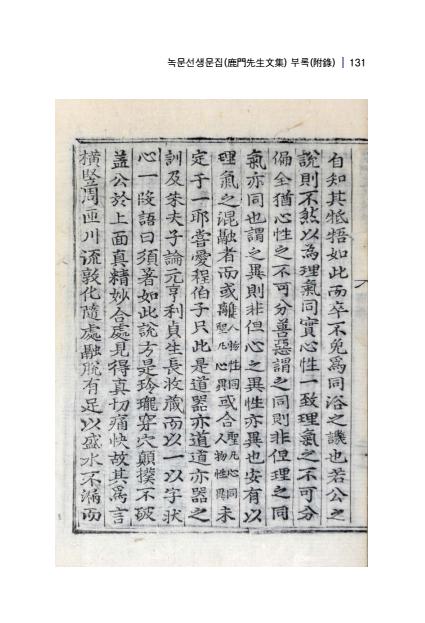 녹문선생문집(鹿門先生文集) 부록(附錄) | 131
自知其牴牾如此而卒不免爲同浴之譏也若公之
說則不然以爲理氣同實心性一致理氣之不可分
偏全猶心性之不可分善惡謂之同則非但理之同
氣亦同也謂之異則非但心之異性亦異也安有以
理氣之混融者而或離人物性同聖凡心異或合聖凡心同人物性異未
定于一耶嘗愛程伯子只此是道器亦道道亦器之
訓及朱夫子論元亨利貞生長收藏而以一以字狀
心一段語曰須著如此說方是玲瓏穿穴顚撲不破
蓋公於上面眞精妙合處見得眞切痛快故其爲言
橫竪周匝川流敦化隨處融脫有足以盛水不漏而